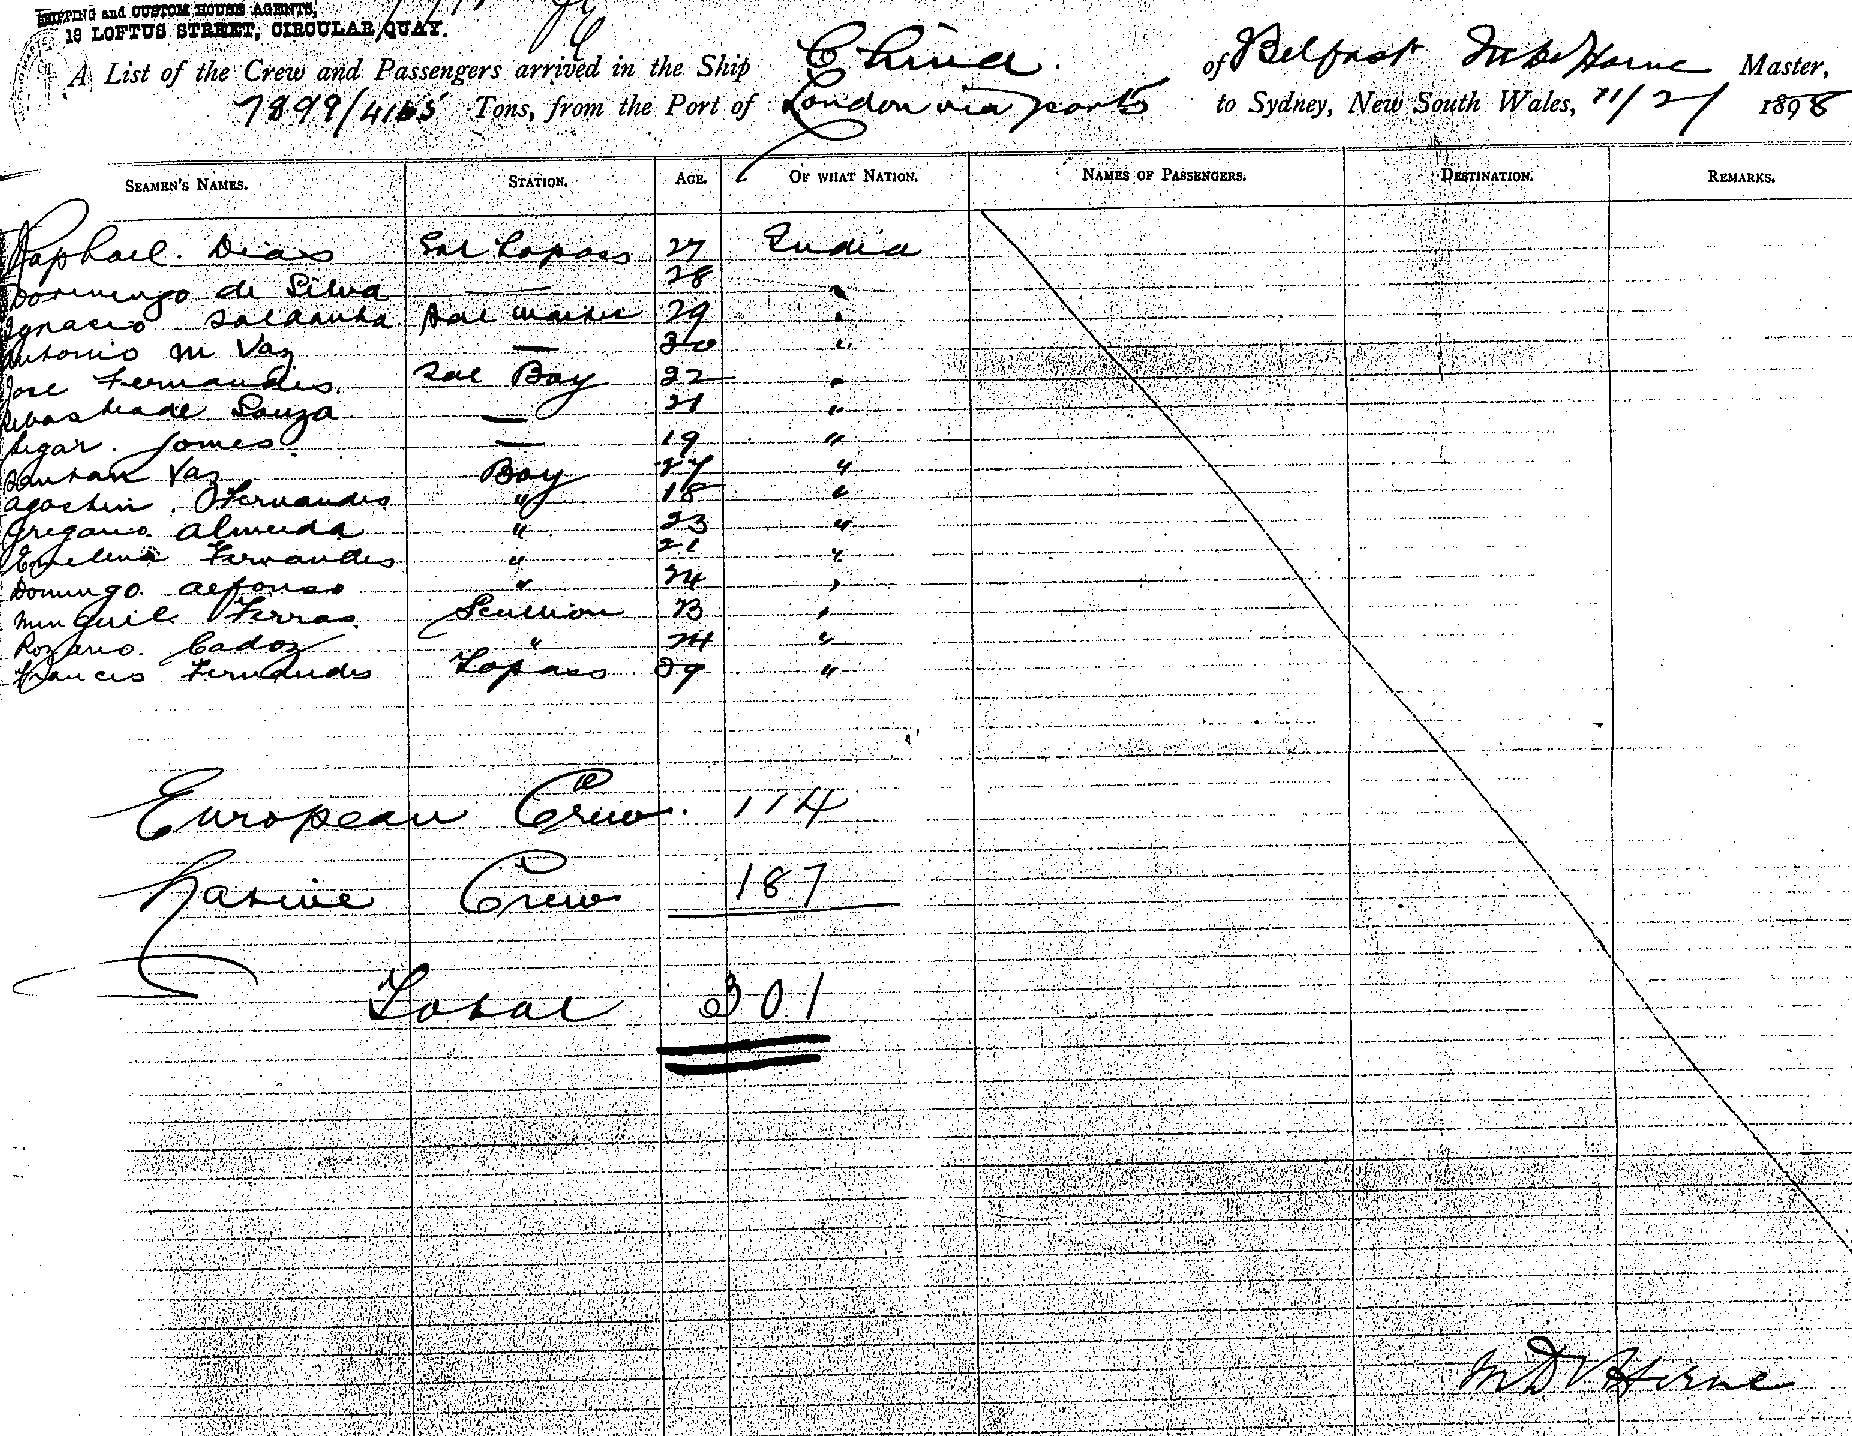 SHIPPING and CUSTOM HOUSE AGENTS,
18 LOFTUS STREET, CIRCULAR QUAY.
A List of the Crew and Passengers arrived in the Ship China. of Belfast Master,
7899/4165 Tons, from the Port of London via ports to Sydney, New South Wales, 21/2/ 1898
SEAMEN'S NAMES. STATION. AGE. OF WHAT NATION. NAMES OF PASSENGERS. DESTINATION. REMARKS.
Raphael. Dias Topass 27 India
Domingo de Silva — 28 "
Ignacio Saldanha 29 "
Antonio M Vaz — 30 "
Jose Fernandes. Sal Boy 32 "
de Souza — 21 "
Gomes — 19 "
Vaz Boy 27 "
Agostin. Fernandes " 18 "
Almeida " 23 "
Fernandes " 21 "
Domingo. Alfonso " 24 "
Ferras. Scullion 23 "
Rozario. Cadoz " 24 "
Francis Fernandes Topass 39 "
European Crew. 114
Native Crew 187
Total 301
M D V Horne